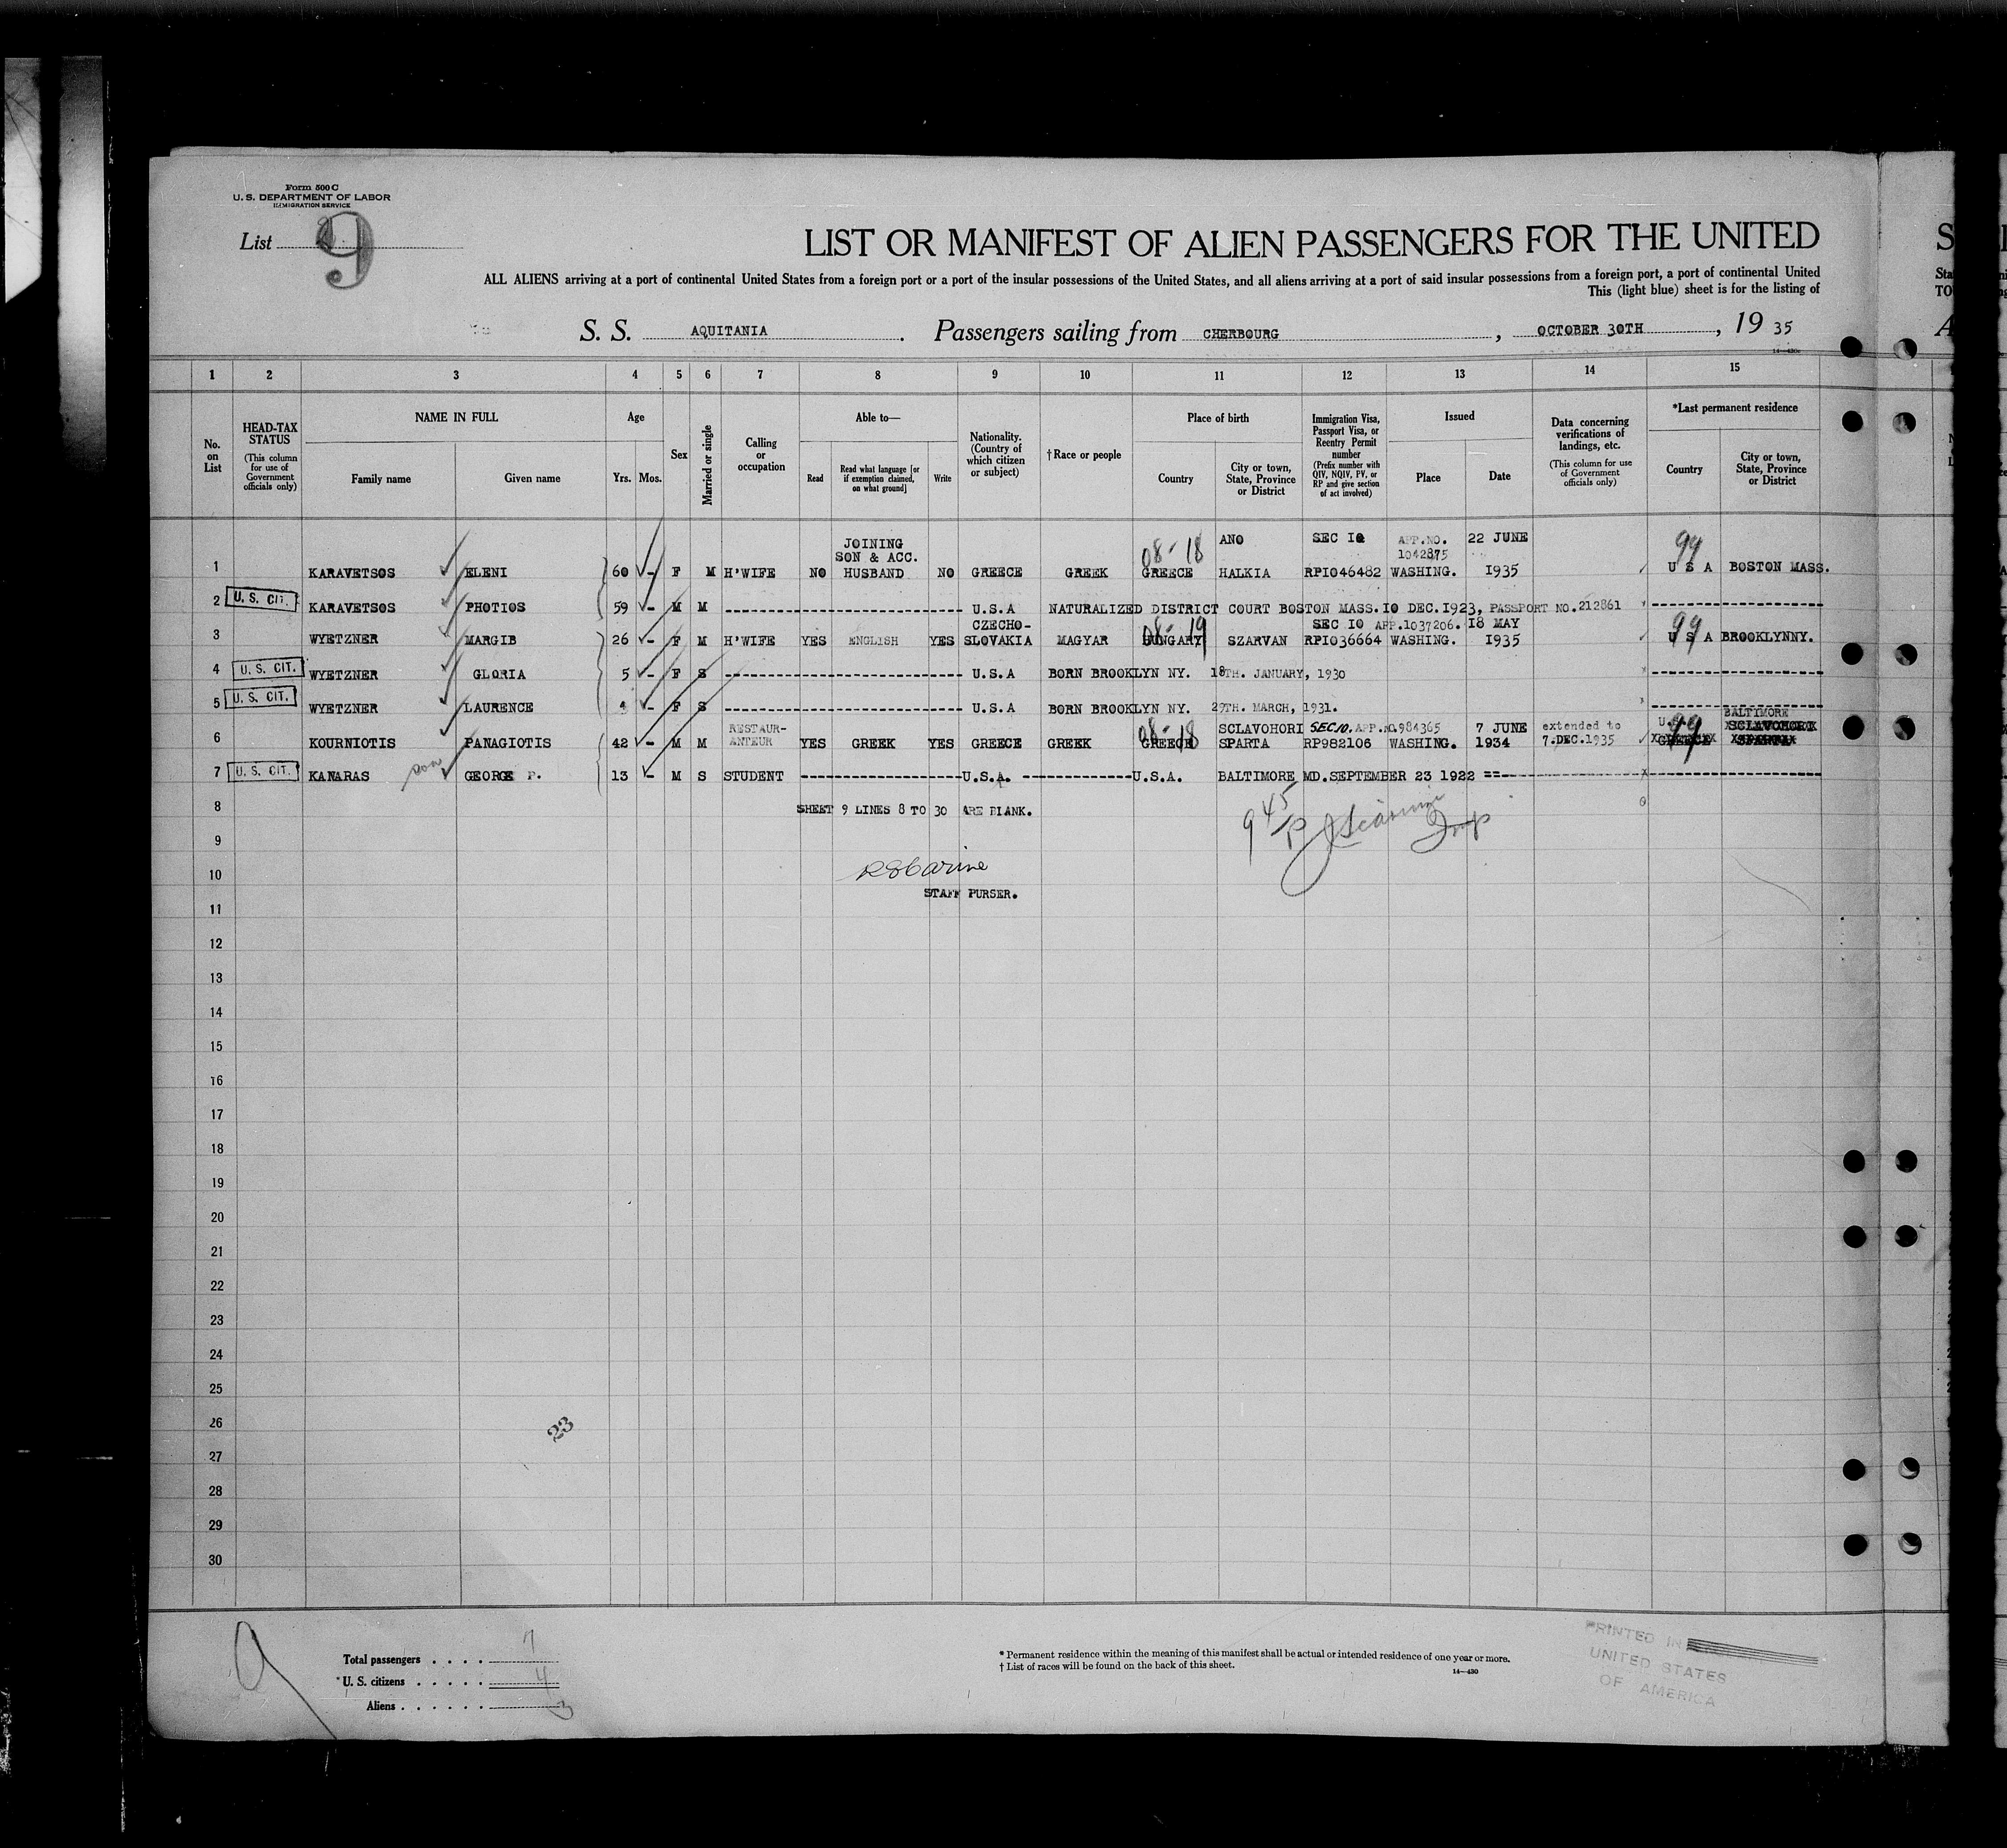 Form 500 C
U. S. DEPARTMENT OF LABOR
IMMIGRATION SERVICE
List 9
LIST OR MANIFEST OF ALIEN PASSENGERS FOR THE UNITED
ALL ALIENS arriving at a port of continental United States from a foreign port or a port of the insular possessions of the United States, and all aliens arriving at a port of said insular possessions from a foreign port, a port of continental United
This (light blue) sheet is for the listing of
S. S. AQUITANIA . Passengers sailing from CHERBOURG , OCTOBER 30TH , 19 35
1 2 3 4 5 6 7 8 9 10 11 12 13 14 15
No. on List
HEAD-TAX STATUS (This column for use of Government officials only)
NAME IN FULL Family name Given name
Age Yrs. Mos.
Sex
Married or single
Calling or occupation
Able to— Read Read what language [or if exemption claimed, on what ground] Write
Nationality. (Country of which citizen or subject)
†Race or people
Place of birth Country City or town, State, Province or District
Immigration Visa, Passport Visa, or Reentry Permit number (Prefix number with QIV, NQIV, PV, or RP and give section of act involved)
Issued Place Date
Data concerning verifications of landings, etc. (This column for use of Government officials only)
*Last permanent residence Country City or town, State, Province or District
JOINING ANO SEC 10 APP.NO. 22 JUNE
SON & ACC. 08-18 1042875 99
1 KARAVETSOS ELENI 60 - F M H'WIFE NO HUSBAND NO GREECE GREEK GREECE HALKIA RP1046482 WASHING. 1935 U S A BOSTON MASS.
2 U. S. CIT. KARAVETSOS PHOTIOS 59 - M M U.S.A NATURALIZED DISTRICT COURT BOSTON MASS.10 DEC.1923, PASSPORT NO.212861
CZECHO- 08-19 SEC 10 APP.1037206. 18 MAY 99
3 WYETZNER MARGIB 26 - F M H'WIFE YES ENGLISH YES SLOVAKIA MAGYAR HUNGARY SZARVAN RP1036664 WASHING. 1935 U S A BROOKLYNNY.
4 U. S. CIT. WYETZNER GLORIA 5 - F S U.S.A BORN BROOKLYN NY. 18TH. JANUARY, 1930
5 U. S. CIT. WYETZNER LAURENCE 4 - F S U.S.A BORN BROOKLYN NY. 29TH. MARCH, 1931.
RESTAUR- 08-18 SCLAVOHORI SEC 10. APP.NO.984365 7 JUNE extended to 99 BALTIMORE SCLAVOHORI
6 KOURNIOTIS PANAGIOTIS 42 - M M ANTEUR YES GREEK YES GREECE GREEK GREECE SPARTA RP982106 WASHING. 1934 7.DEC.1935 GREECE SPARTA
7 U. S. CIT. KANARAS son GEORGE P. 13 - M S STUDENT U.S.A. U.S.A. BALTIMORE MD.SEPTEMBER 23 1922
8 SHEET 9 LINES 8 TO 30 ARE BLANK.
9 945
10
STAFF PURSER.
11
12
13
14
15
16
17
18
19
20
21
22
23
24
25
26
23
27
28
29
30
9
Total passengers . . . . 7
* U. S. citizens . . . . . 4
Aliens . . . . . 3
* Permanent residence within the meaning of this manifest shall be actual or intended residence of one year or more.
† List of races will be found on the back of this sheet. 14—430
PRINTED IN
UNITED STATES
OF AMERICA